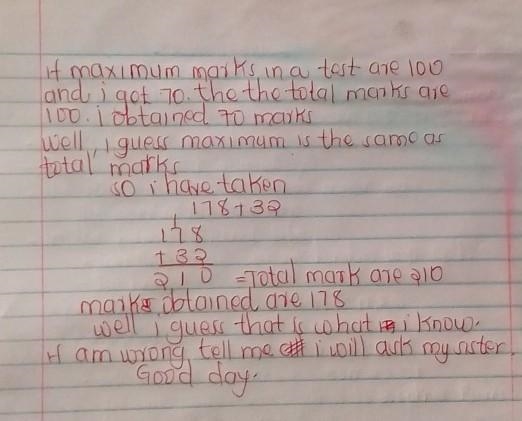 If maximum marks in a test are 100
and i got 70. the the total marks are
100. i obtained 70 marks
Well, i guess maximum is the same as
total marks
so i have taken
178+32
1
178
+ 32
210 =Total mark are 210
marks obtained are 178
well i guess that is what i know.
If am wrong tell me i will ask my sister.
Good day.